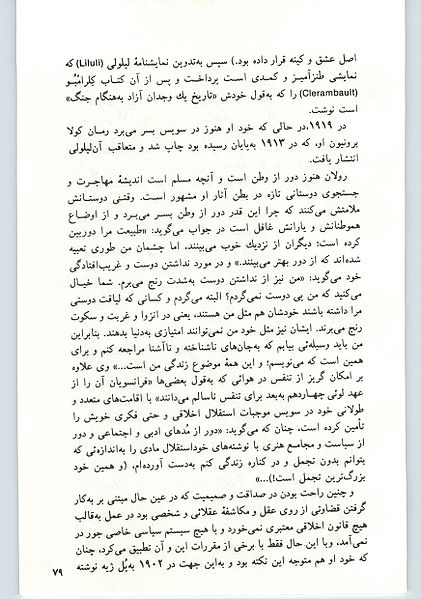 اصل عشق و کینه قرار داده بود.) سپس به‌تدوین نمایشنامهٔ لیلولی (Liluli) که
نمایشی طنزآمیز و کمدی است پرداخت و پس از آن کتاب کلرامبُو
(Clerambault) را که به‌قول خودش «تاریخ یك وجدان آزاد به‌هنگام جنگ»
است نوشت.
در ۱۹۱۹،در حالی که خود او هنوز در سویس بسر می‌برد رمان کولا
برونیون او، که در ۱۹۱۳ به‌پایان رسیده بود چاپ شد و متعاقب آن‌لیلولی
انتشار یافت.
رولان هنوز دور از وطن است و آنچه مسلم است اندیشهٔ مهاجرت و
جستجوی دوستانی تازه در بطن آثار او مشهور است. وقتی دوستانش
ملامتش می‌کنند که چرا این قدر دور از وطن بسر می‌برد و از اوضاع
هموطنانش و یارانش غافل است در جواب می‌گوید: «طبیعت مرا دوربین
کرده است؛ دیگران از نزدیك خوب می‌بینند، اما چشمان من طوری تعبیه
شده‌اند که از دور بهتر می‌بینند.» و در مورد نداشتن دوست و غریب‌افتادگی
خود می‌گوید: «من نیز از نداشتن دوست به‌شدت رنج می‌برم. شما خیال
می‌کنید که من پی دوست نمی‌گردم؟ البته می‌گردم و کسانی که لیاقت دوستی
مرا داشته باشند خودشان هم مثل من هستند، یعنی در انزوا و غربت و سکوت
رنج می‌برند. ایشان نیز مثل خود من نمی‌توانند امتیازی به‌دنیا بدهند. بنابراین
من باید وسیله‌ئی بیابم که به‌جان‌های ناشناخته و ناآشنا مراجعه کنم و برای
همین است که می‌نویسم؛ و این همهٔ موضوع زندگی من است...» وی علاوه
بر امکان گریز از تنفس در هوائی که به‌قول بعضی‌ها «فرانسویان آن را از
عهد لوئی چهاردهم به‌بعد برای تنفس ناسالم می‌دانند» با اقامت‌های متعدد و
طولانی خود در سویس موجبات استقلال اخلاقی و حتی فکری خویش را
تأمین کرده است، چنان که می‌گوید: «دور از مُدهای ادبی و اجتماعی و دور
از سیاست و مجامع هنری با نوشته‌های خوداستقلال مادی را به‌اندازه‌ئی که
بتوانم بدون تجمل و در کناره زندگی کنم به‌دست آورده‌ام، (و همین خود
بزرگ‌ترین تجمل است!)...»
و چنین راحت بودن در صداقت و صمیمیت که در عین حال مبتنی بر به‌کار
گرفتن قضاوتی از روی عقل و مکاشفهٔ عقلائی و شخصی بود در عمل به‌قالب
هیچ قانون اخلاقی معتبری نمی‌خورد و با هیچ سیستم سیاسی خاصی جور در
نمی‌آمد، وبا این حال فقط با برخی از مقررات این و آن تطبیق می‌کرد، چنان
که خود او هم متوجه این نکته بود و به‌این جهت در ۱۹۰۲ به‌پُل ژبه نوشته
۷۹